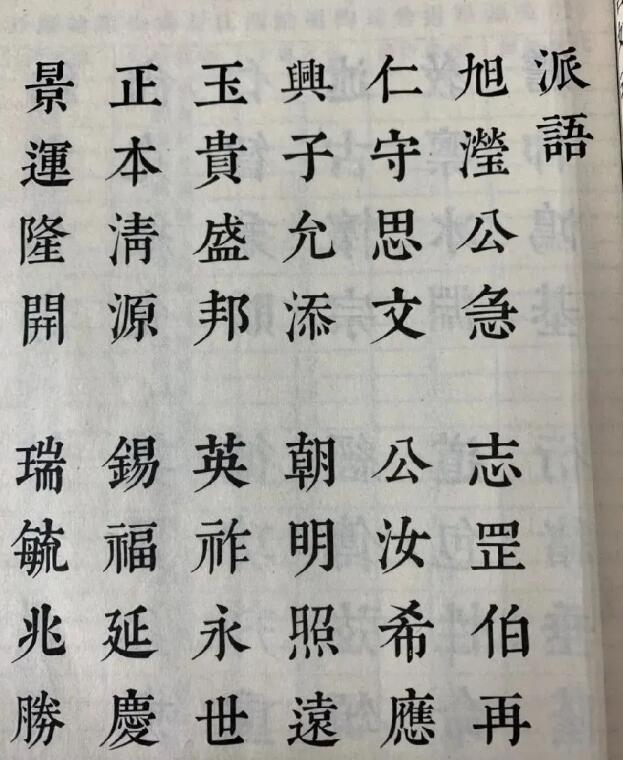 派語
旭瀅公急 志罡伯再
仁守思文 公汝希應
興子允添 朝明照遠
玉貴盛邦 英祚永世
正本清源 錫福延慶
景運隆開 瑞毓兆勝